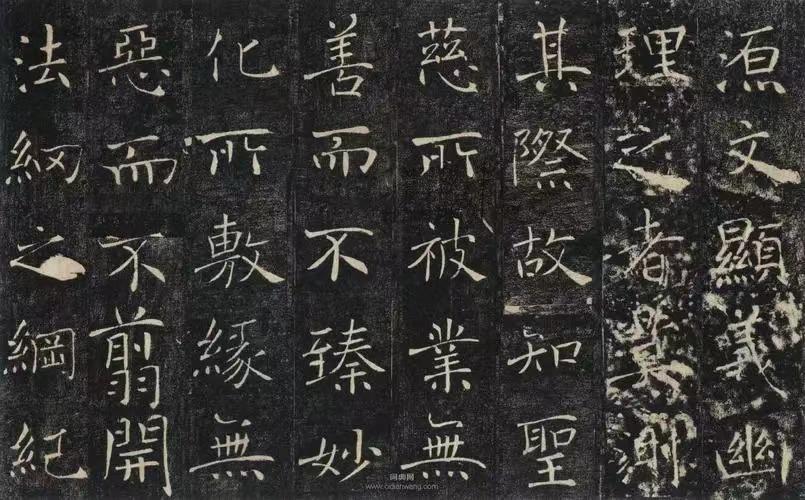 源文顯義幽
理之者莫測
其際故知聖
慈所被業無
善而不臻妙
化所敷緣無
惡而不翦開
法網之綱紀
词典网
www.cidianwang.com